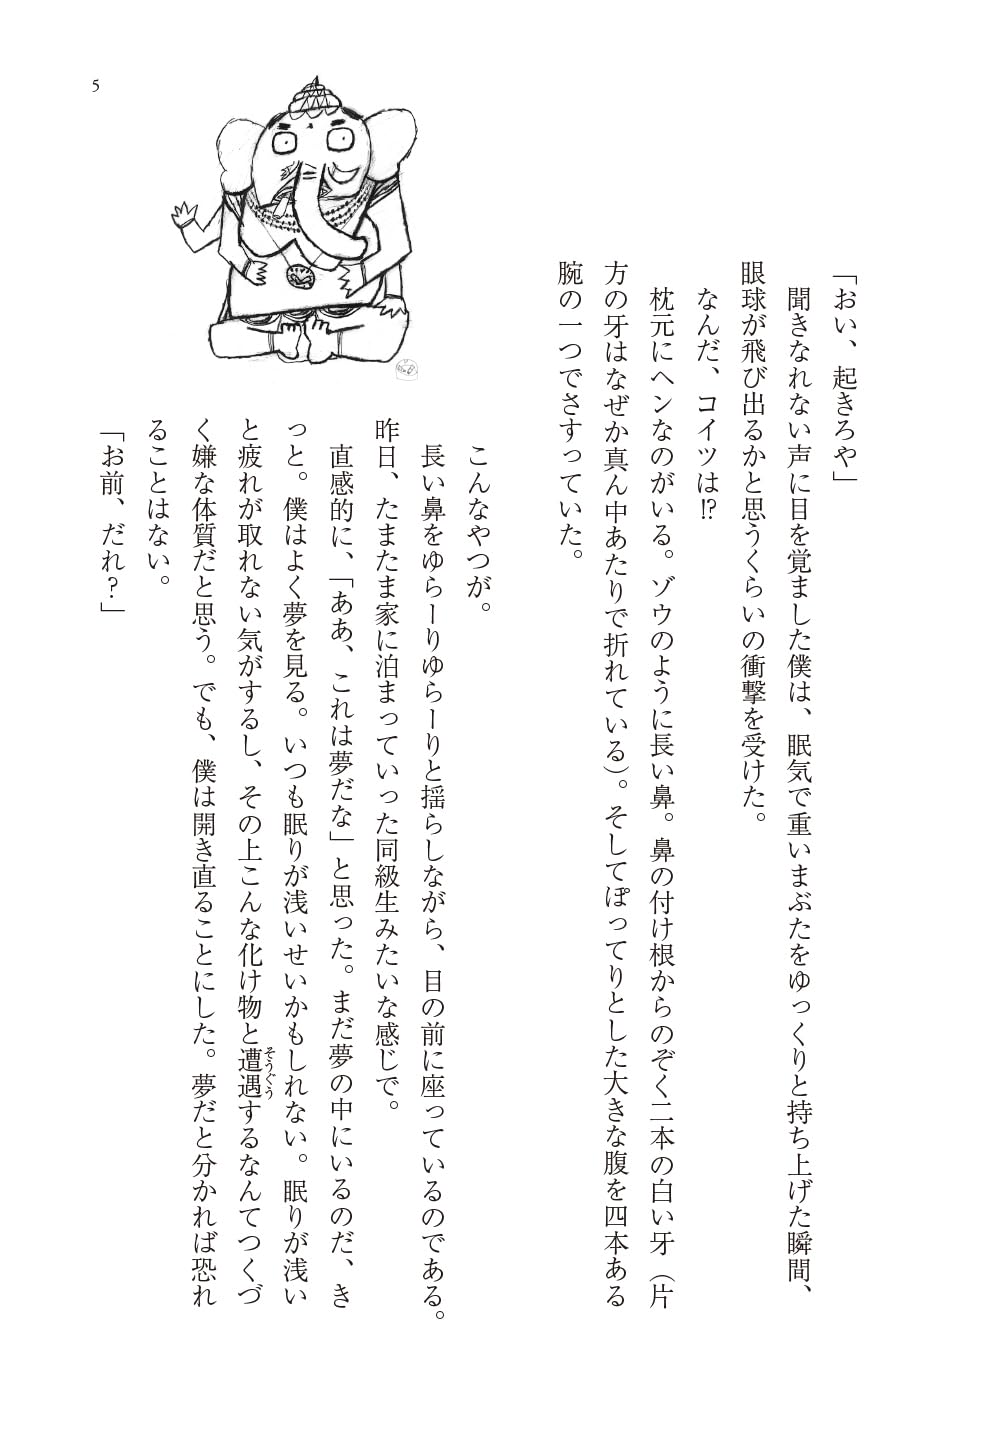 「おい、起きろや」
聞きなれない声に目を覚ました僕は、眠気で重いまぶたをゆっくりと持ち上げた瞬間、
眼球が飛び出るかと思うくらいの衝撃を受けた。
なんだ、コイツは!?
枕元にヘンなのがいる。ゾウのように長い鼻。鼻の付け根からのぞく二本の白い牙（片
方の牙はなぜか真ん中あたりで折れている）。そしてぽってりとした大きな腹を四本ある
腕の一つでさすっていた。
こんなやつが。
長い鼻をゆらーりゆらーりと揺らしながら、目の前に座っているのである。
昨日、たまたま家に泊まっていった同級生みたいな感じで。
直感的に、「ああ、これは夢だな」と思った。まだ夢の中にいるのだ、き
っと。僕はよく夢を見る。いつも眠りが浅いせいかもしれない。眠りが浅い
と疲れが取れない気がするし、その上こんな化け物と遭遇そうぐうするなんてつくづ
く嫌な体質だと思う。でも、僕は開き直ることにした。夢だと分かれば恐れ
ることはない。
「お前、だれ？」
5